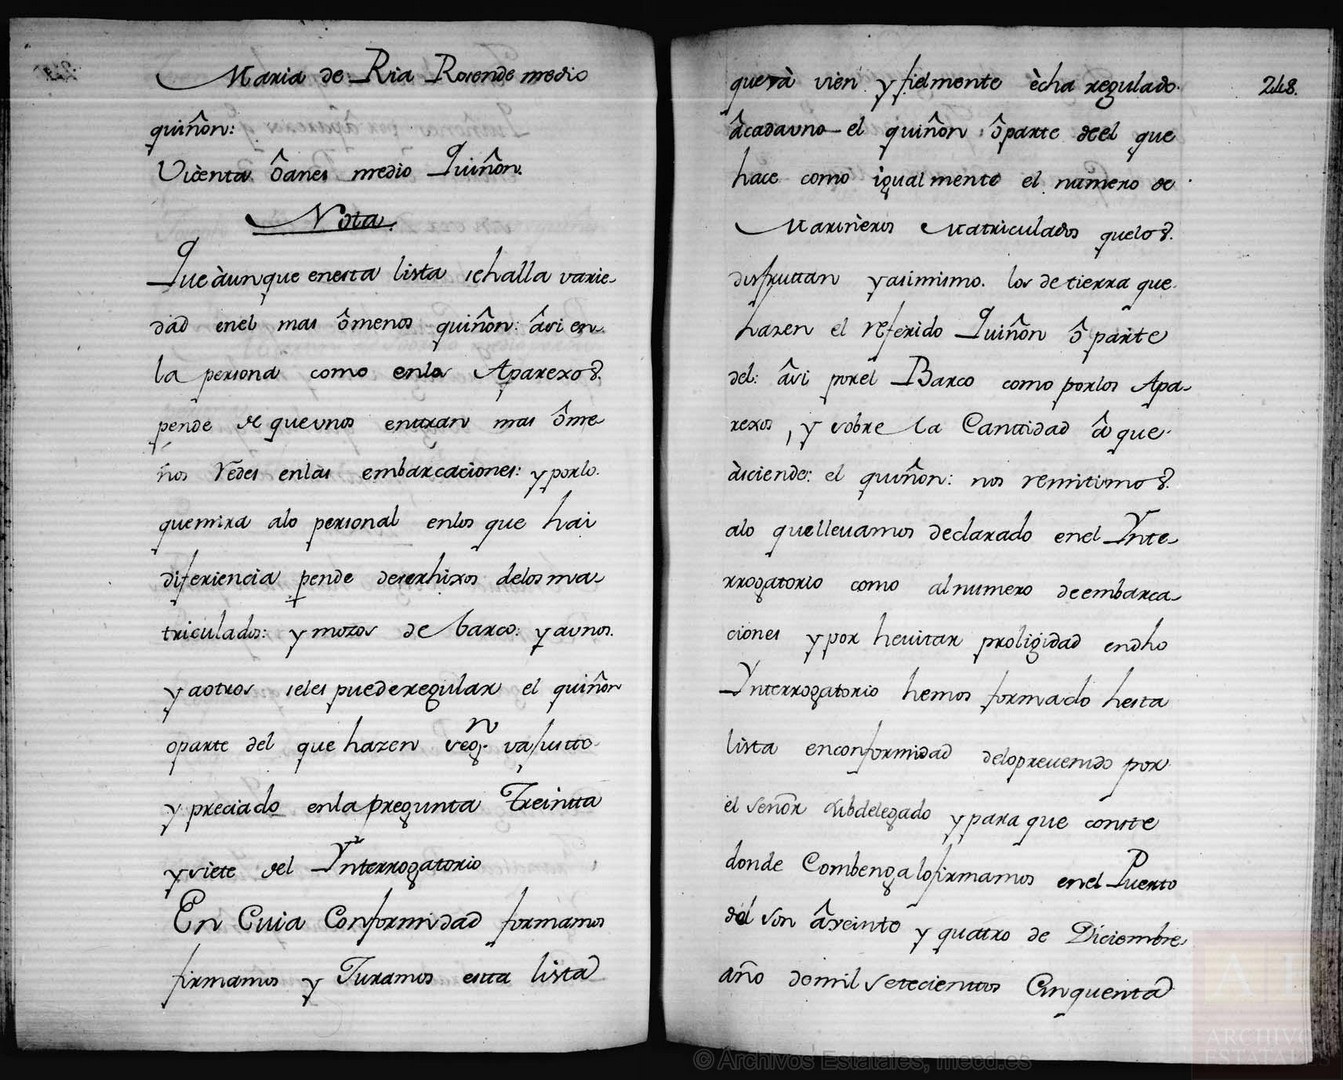 Maria de Ria Rosende medio
quiñon:
Vicenta ôanes medio Quiñon.
Nota.
Que àunque enesta lista sehalla varie-
dad enel mas ômenos quiñon: âsi en
la persona como enlos Aparexos.
pende de quevnos entran mas ôme-
nos rêdes enlas embarcaciones: y porlo.
quemira alo personal enlos que hai
diferiencia pende deserhixos delosma-
triculados: y mozos de barco: y aunos.
y aotros seles puederegular el quiñon
oparte del que hazen segn. va justto-
y preciado enla pregunta Treintta
y siete del Ynterrogatorio
En Cuia Conformidad formamos
firmamos y Juramos esta lista
queva vien y fielmente êcha regulado.
âcadauno el quiñon ôparte deel que
hace como igualmente el numero de
Mariñeros Matriculados quelos.
disfruttan yasimismo. los de tierra que.
hazen el referido Quiñon ô parte
del: âsi porel Barco como porlos Apa-
rexos, y sobre la Canttidad â que.
àsciende: el quiñon: nos remitimos.
alo quellevamos declarado enel Ynte-
rrogatorio como alnumero deembarca-
ciones y por hevitar proligidad endho
Ynterrogatorio hemos formado hesta
lista enconformidad deloprevenido por
el señor subdelegado ypara que conste
donde Combenga lofirmamos enel Puerto
del son âveinte y quatro de Diciembre
año demil setecientos Cinquenta
248.
© Archivos Estatales, mecd.es
ARCHIVOS
ESTATALES